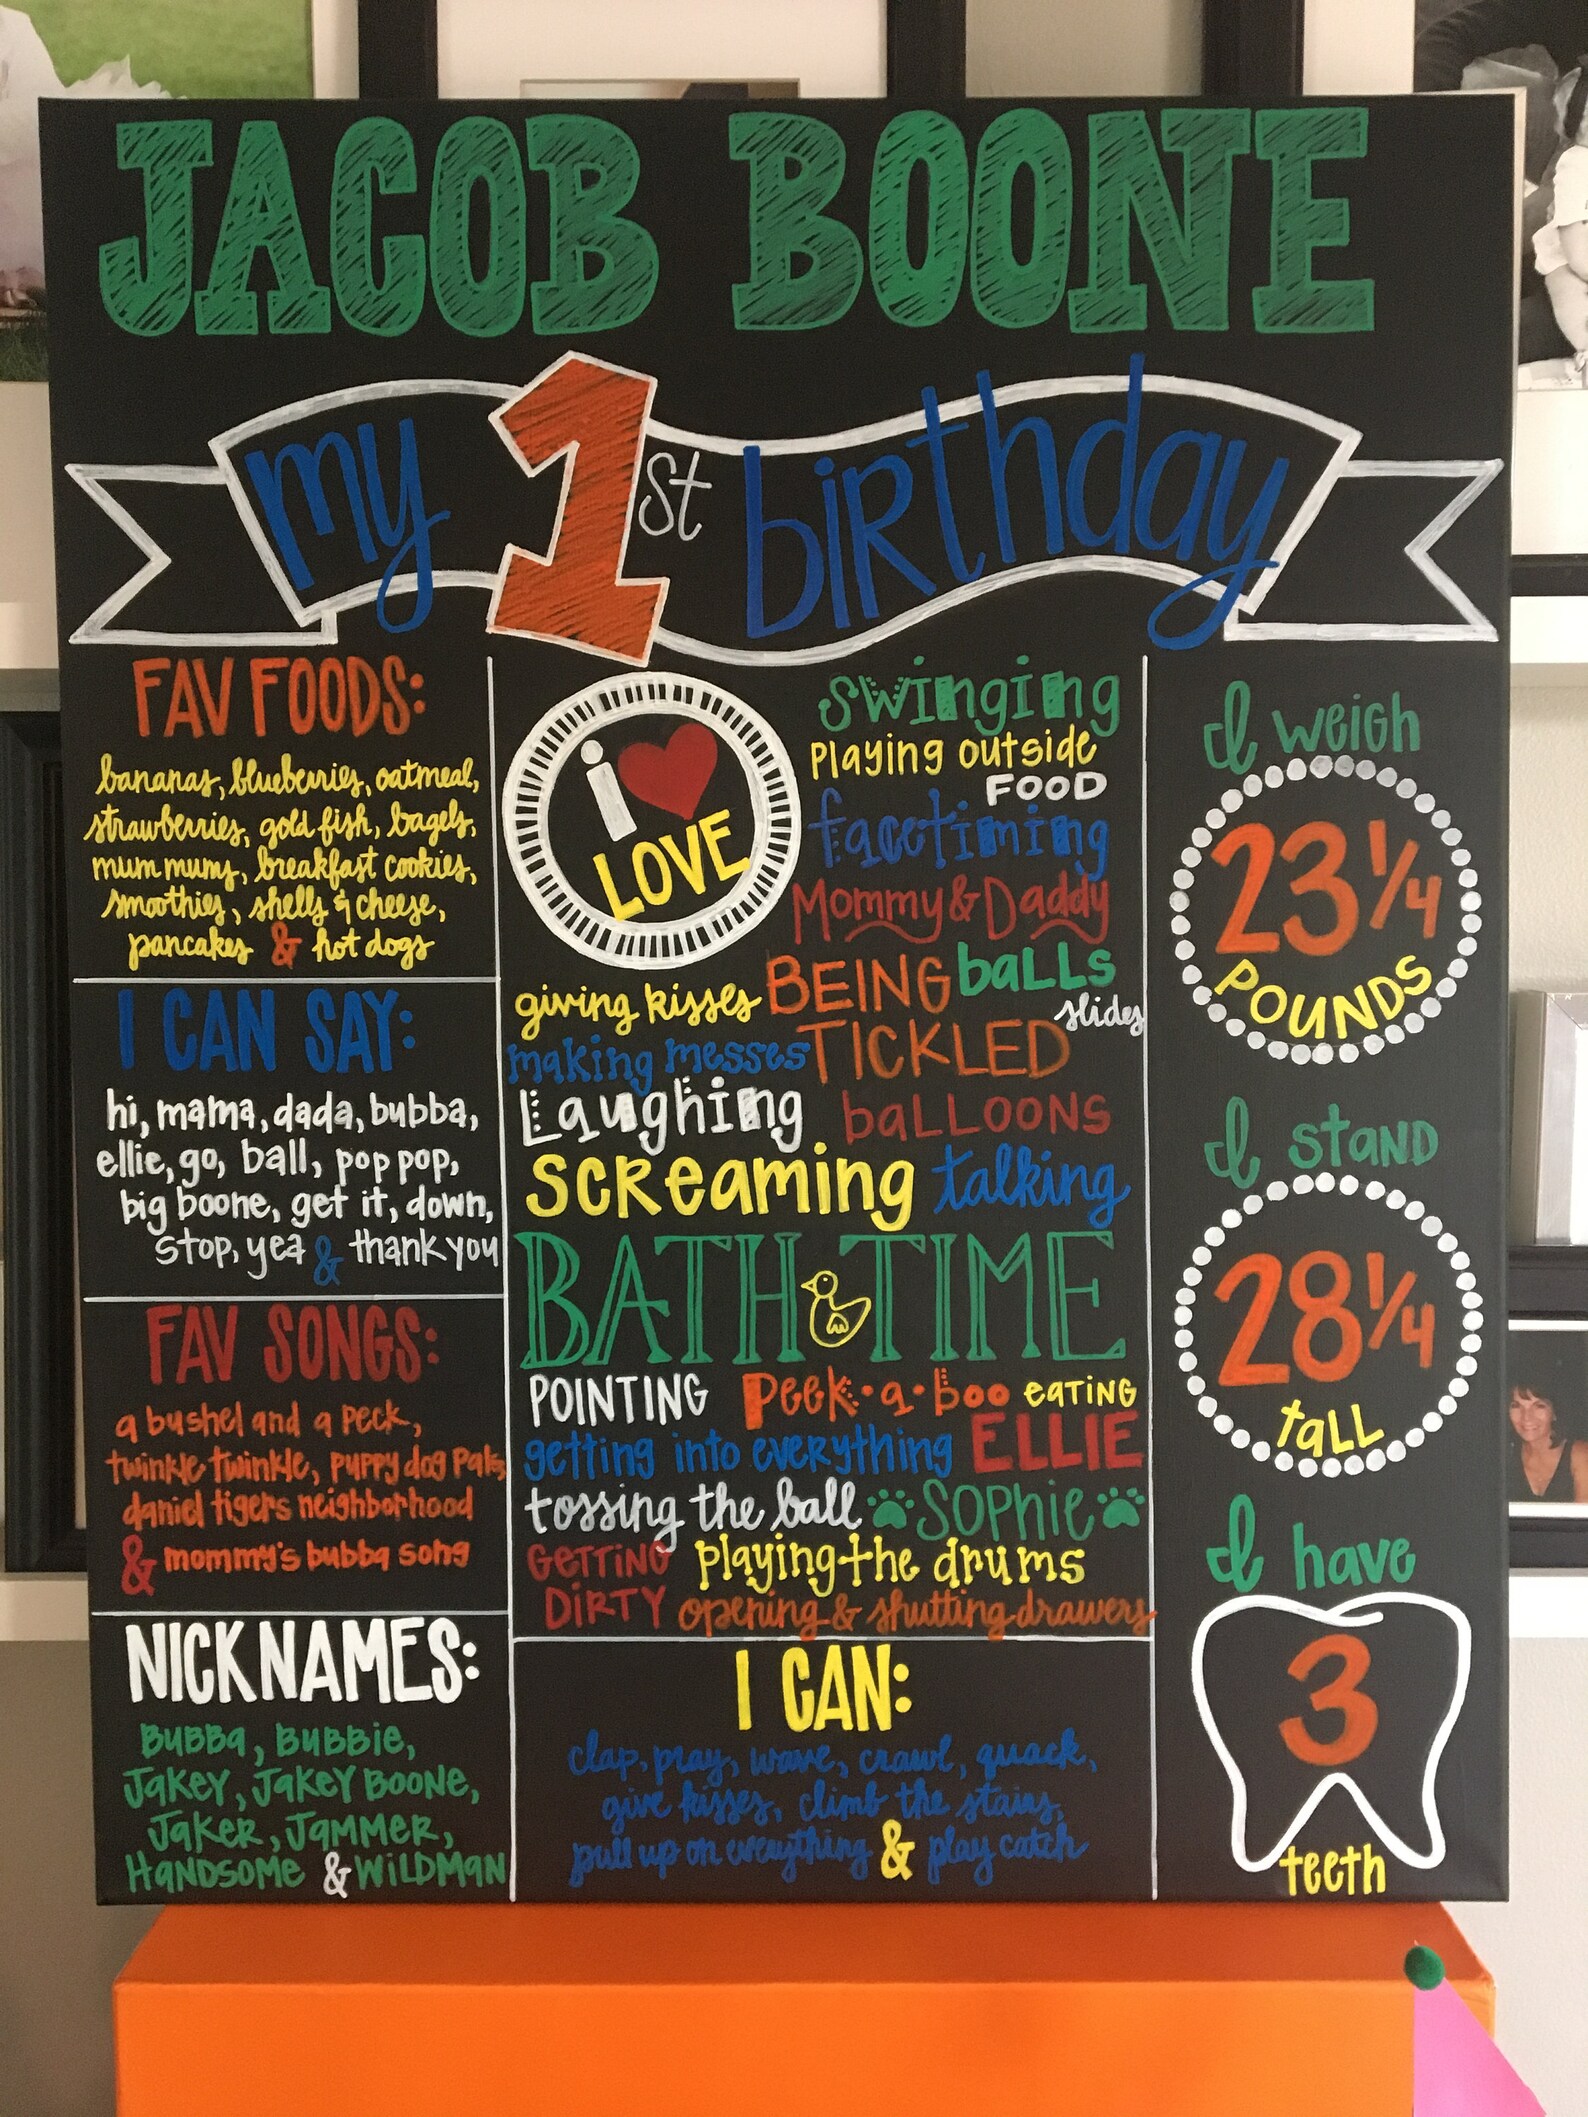 JACOB BOONE
my 1st birthday
FAV FOODS:
bananas, blueberries, oatmeal,
strawberries, gold fish, bagels,
mum mums, breakfast cookies,
smoothies, shells & cheese,
pancakes & hot dogs
I CAN SAY:
hi, mama, dada, bubba,
ellie, go, ball, pop pop,
big boone, get it, down,
stop, yea & thank you
FAV SONGS:
a bushel and a peck,
twinkle twinkle, puppy dog pals
daniel tigers neighborhood
& mommy's bubba song
NICKNAMES:
BUBBa, BUBBie,
JaKeY, JaKeY BOONe,
JaKeR, JaMMeR,
HaNDSOMe & WiLDMaN
i
LOVE
swinging
playing outside
FOOD
facetiming
Mommy & Daddy
giving kisses
BEING
TICKLED
baLLs
slides
making messes
Laughing
baLLOONS
screaming
talking
BATH TIME
POINTING
peek-a-boo
eating
getting into everything
ELLIE
tossing the ball
SOPhie
GeTTiNG
DiRTY
playing the drums
opening & shutting drawers
I CAN:
clap, play, wave, crawl, quack,
give kisses, climb the stairs,
pull up on everything & play catch
I weigh
23 1/4
POUNDS
I stand
28 1/4
taLL
I have
3
teeth